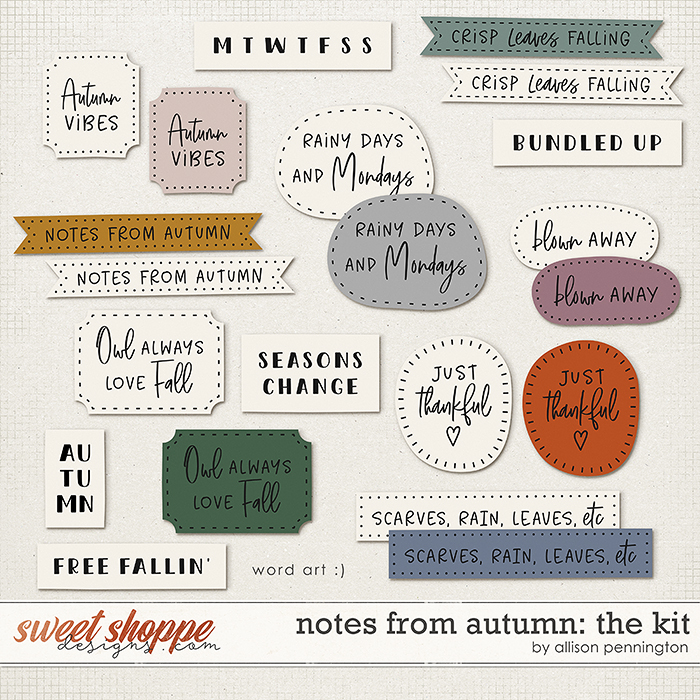 M T W T F S S
CRISP leaves FALLING
CRISP leaves FALLING
Autumn
VIBES
Autumn
VIBES
RAINY DAYS
AND Mondays
BUNDLED UP
RAINY DAYS
AND Mondays
NOTES FROM AUTUMN
NOTES FROM AUTUMN
blown AWAY
blown AWAY
Owl ALWAYS
LOVE Fall
SEASONS
CHANGE
JUST
thankful
JUST
thankful
AU
TU
MN
Owl ALWAYS
LOVE Fall
SCARVES, RAIN, LEAVES, etc
SCARVES, RAIN, LEAVES, etc
FREE FALLIN'
word art :)
sweet shoppe
designs.com
notes from autumn: the kit
by allison pennington